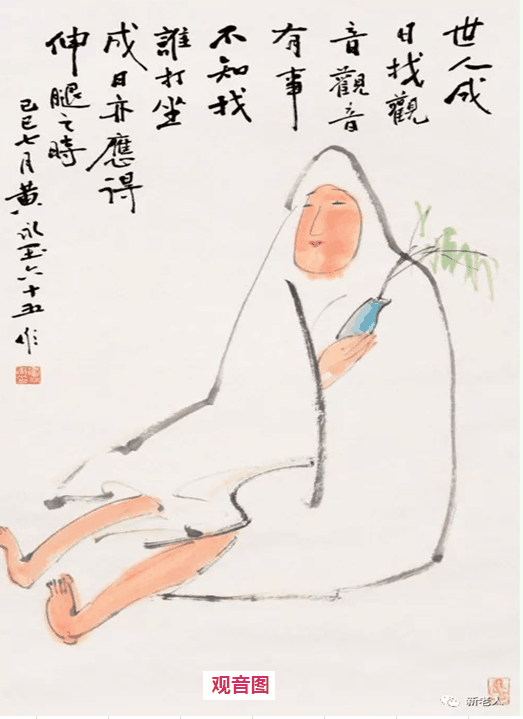 世人成
日找觀
音觀音
有事
不知找
誰打坐
成日亦應得
伸腿之時
己巳七月黃永玉六十五作
观音图
新老人